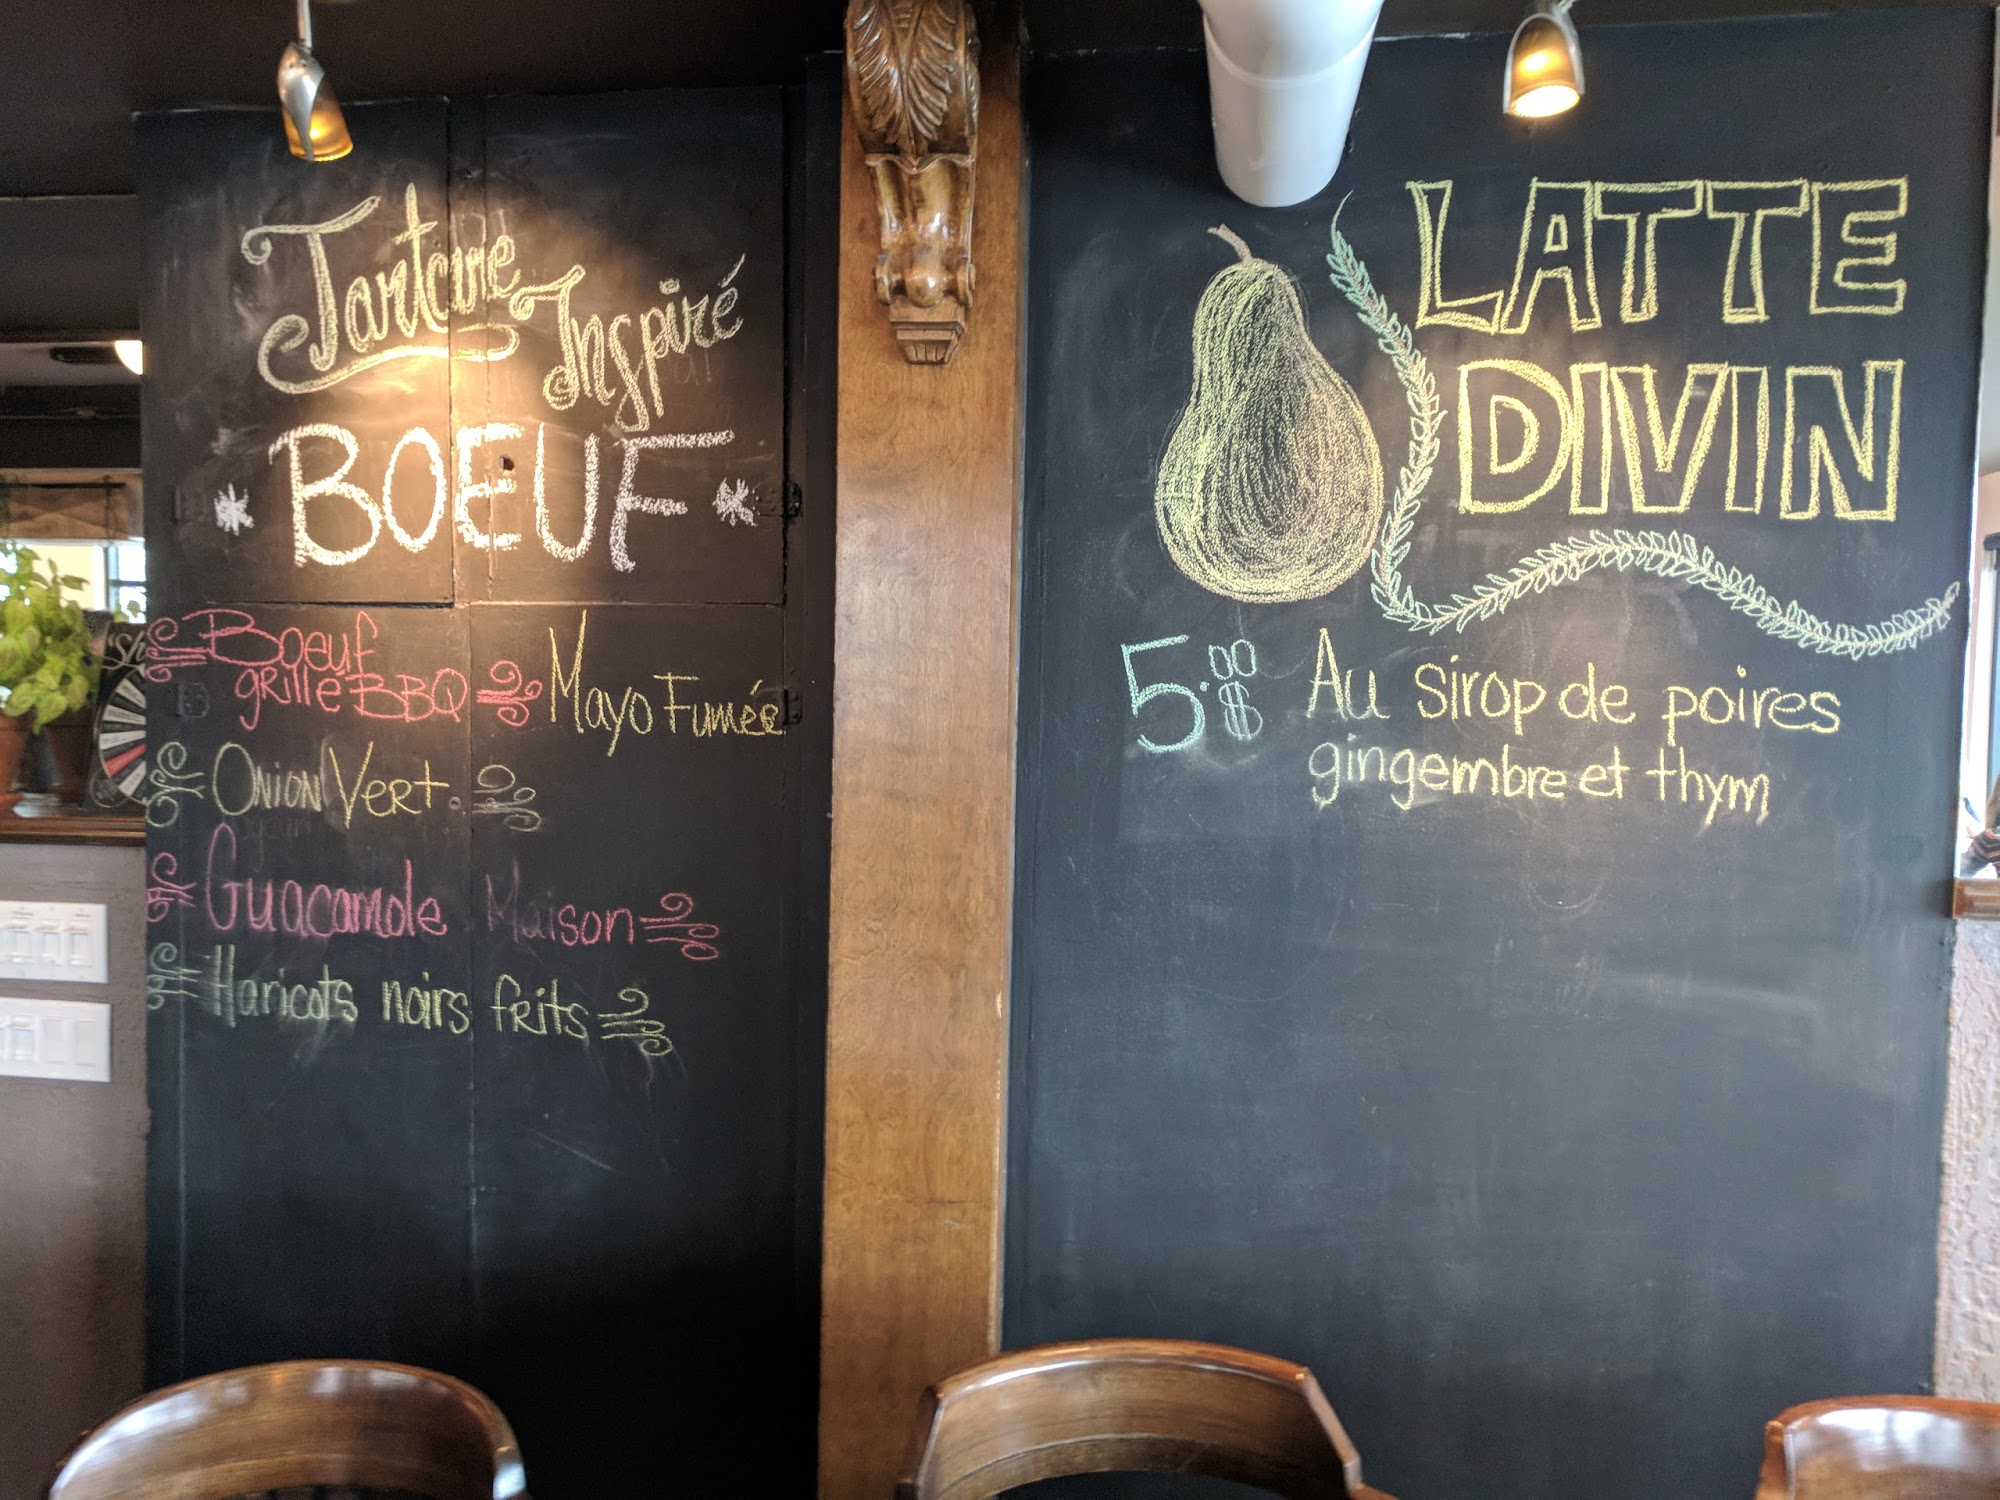 Tartare
Inspiré
BOEUF
Boeuf
grillé BBQ Mayo Fumée
Onion Vert
Guacamole Maison
Haricots noirs frits
LATTE
DIVIN
5.00$ Au sirop de poires
gingembre et thym